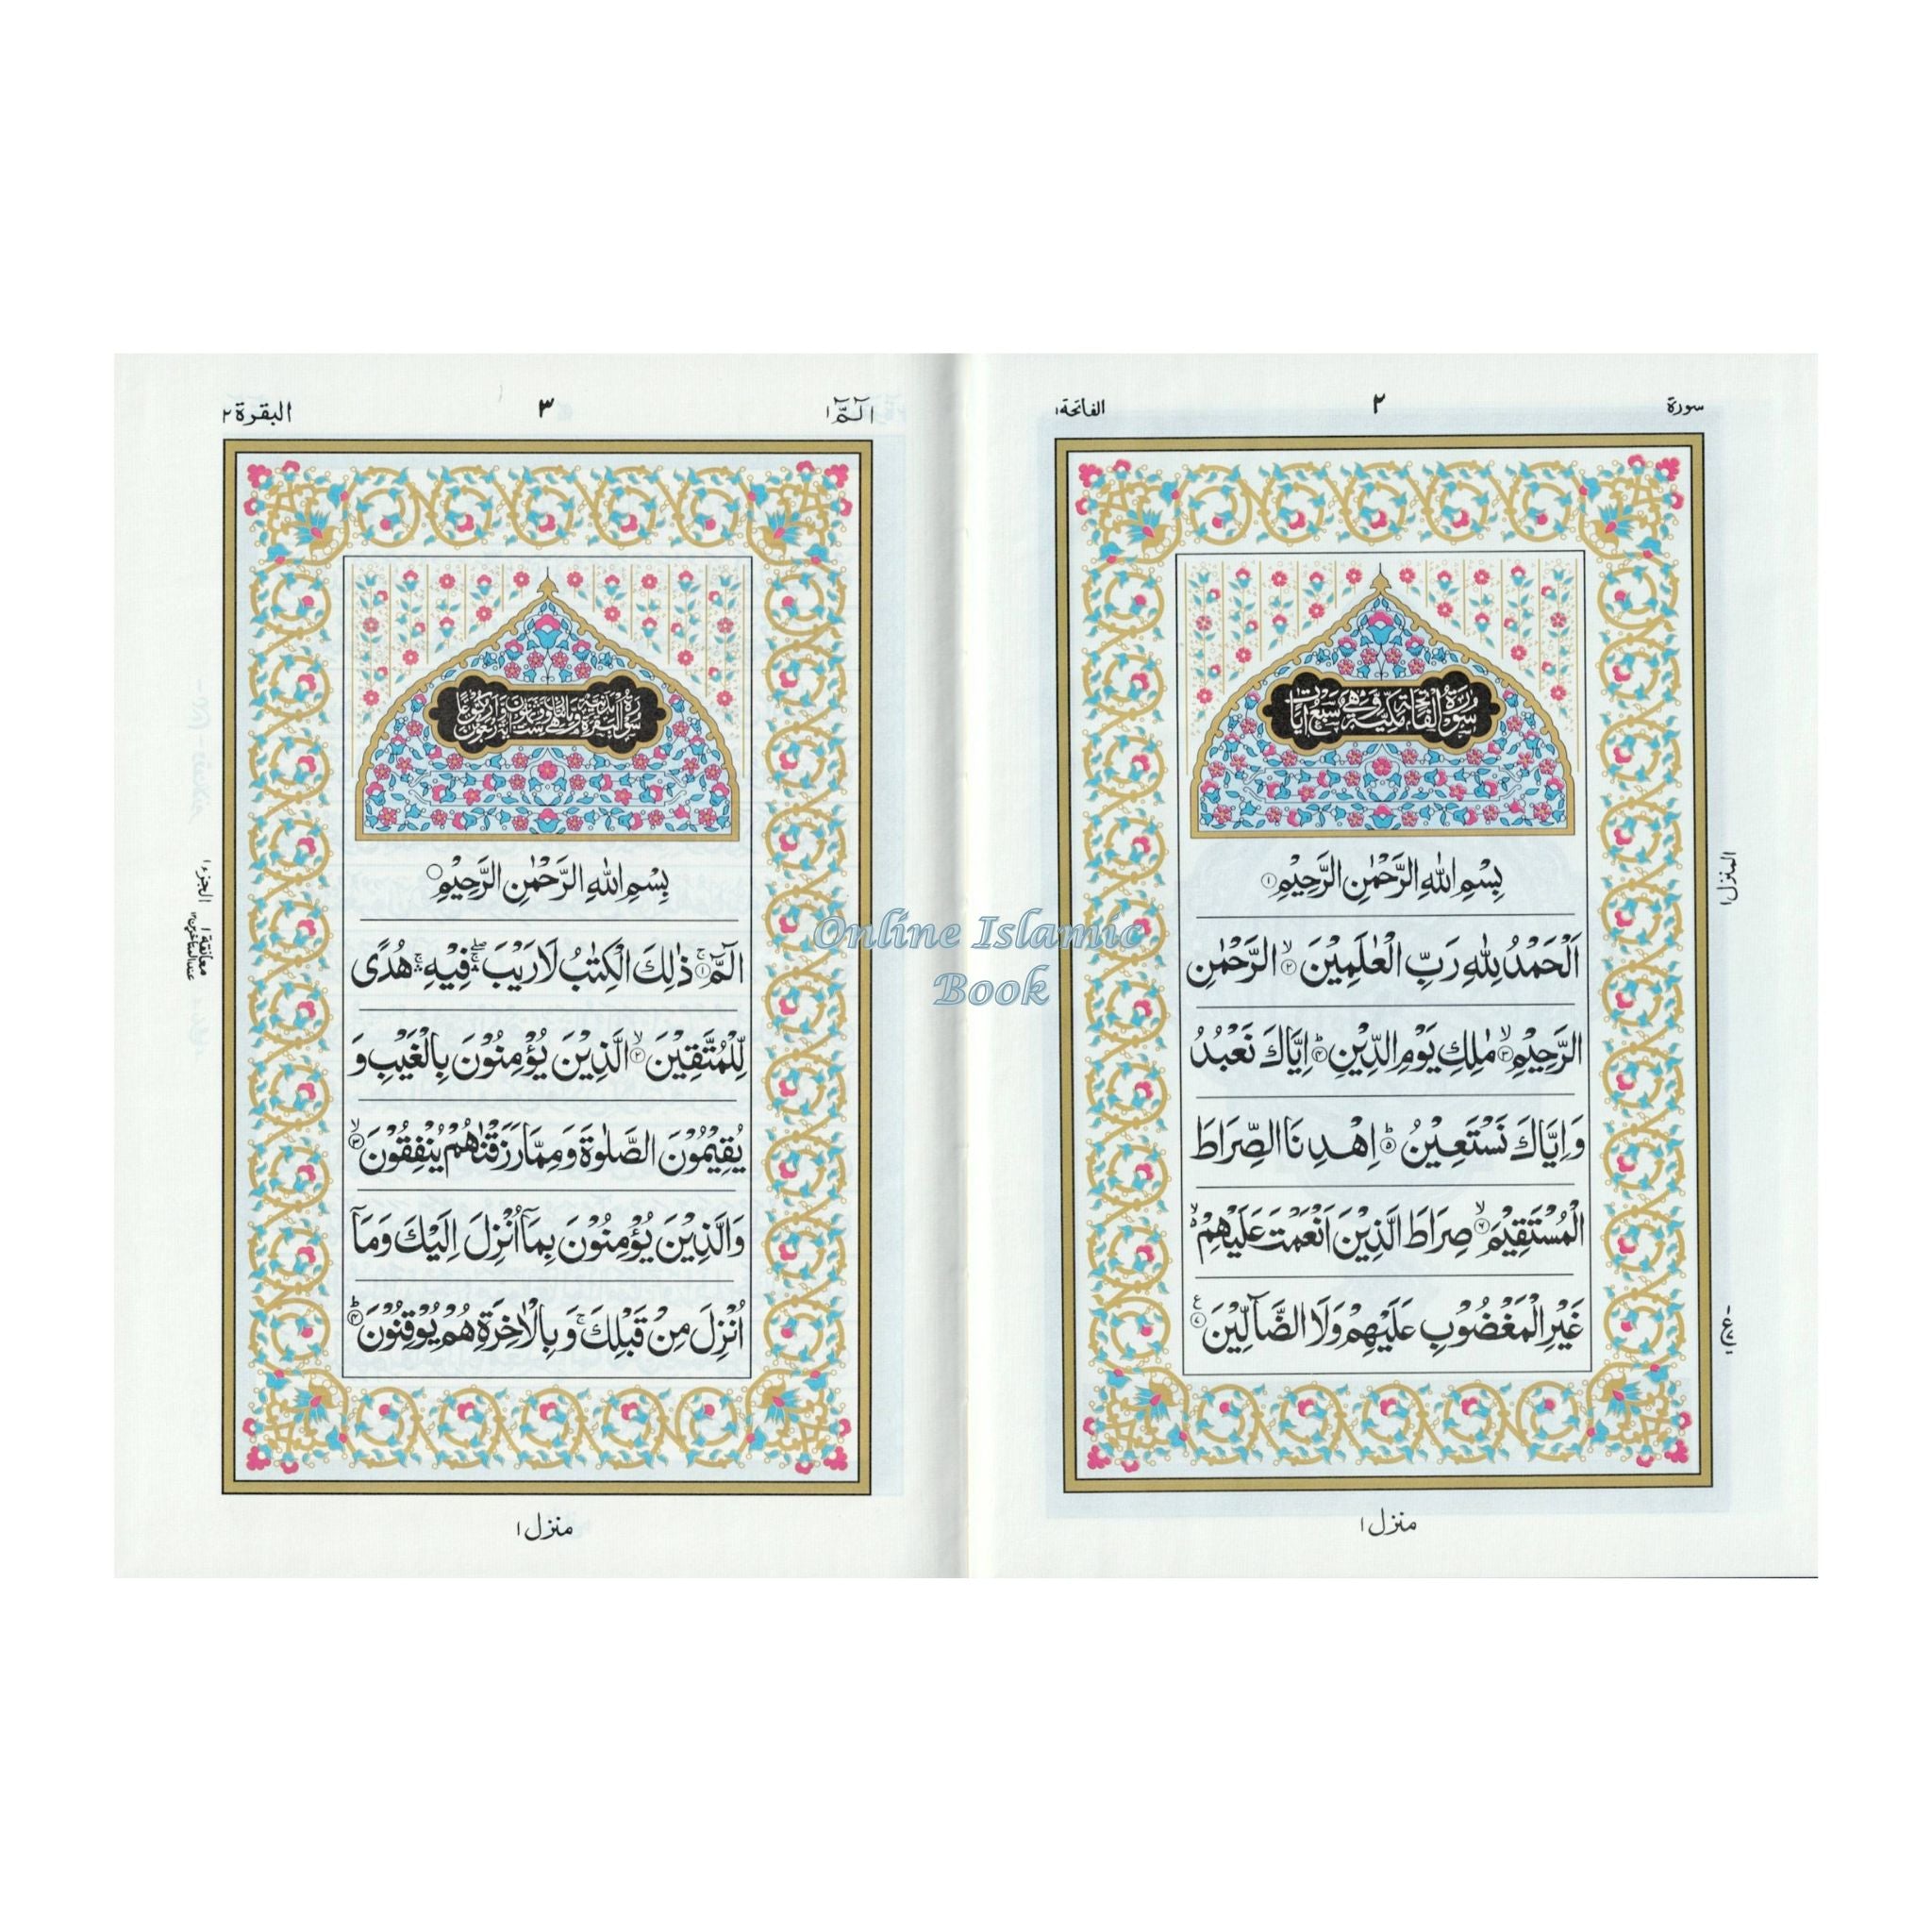 سورة ٢ الفاتحة١
سُوْرَةُ الْفَاتِحَةِ مَكِّيَّةٌ وَّهِيَ سَبْعُ اٰيَاتٍ
بِسْمِ اللهِ الرَّحْمٰنِ الرَّحِيْمِ ١
اَلْحَمْدُ لِلّٰهِ رَبِّ الْعٰلَمِيْنَ ۙ٢ الرَّحْمٰنِ
الرَّحِيْمِ ۙ٣ مٰلِكِ يَوْمِ الدِّيْنِ ؕ٤ اِيَّاكَ نَعْبُدُ
وَ اِيَّاكَ نَسْتَعِيْنُ ؕ٥ اِهْدِنَا الصِّرَاطَ
الْمُسْتَقِيْمَ ۙ٦ صِرَاطَ الَّذِيْنَ اَنْعَمْتَ عَلَيْهِمْ ۙ۬
غَيْرِ الْمَغْضُوْبِ عَلَيْهِمْ وَلَا الضَّآلِّيْنَ ٧ ع
المنزل١
منزل ١
الٓمّٓ ١ ٣ البقرة ٢
بِسْمِ اللهِ الرَّحْمٰنِ الرَّحِيْمِ
الٓمّٓ ۚ١ ذٰلِكَ الْكِتٰبُ لَا رَيْبَ ۛۖ فِيْهِ ۛۚ هُدًى
لِّلْمُتَّقِيْنَ ۙ٢ الَّذِيْنَ يُؤْمِنُوْنَ بِالْغَيْبِ وَ
يُقِيْمُوْنَ الصَّلٰوةَ وَمِمَّا رَزَقْنٰهُمْ يُنْفِقُوْنَ ۙ٣
وَالَّذِيْنَ يُؤْمِنُوْنَ بِمَآ اُنْزِلَ اِلَيْكَ وَمَآ
اُنْزِلَ مِنْ قَبْلِكَ ۚ وَ بِالْاٰخِرَةِ هُمْ يُوْقِنُوْنَ ؕ٤
الجزء ١
معانقة ١
عند المتأخرين ١٢
منزل ١
Online Islamic
Book